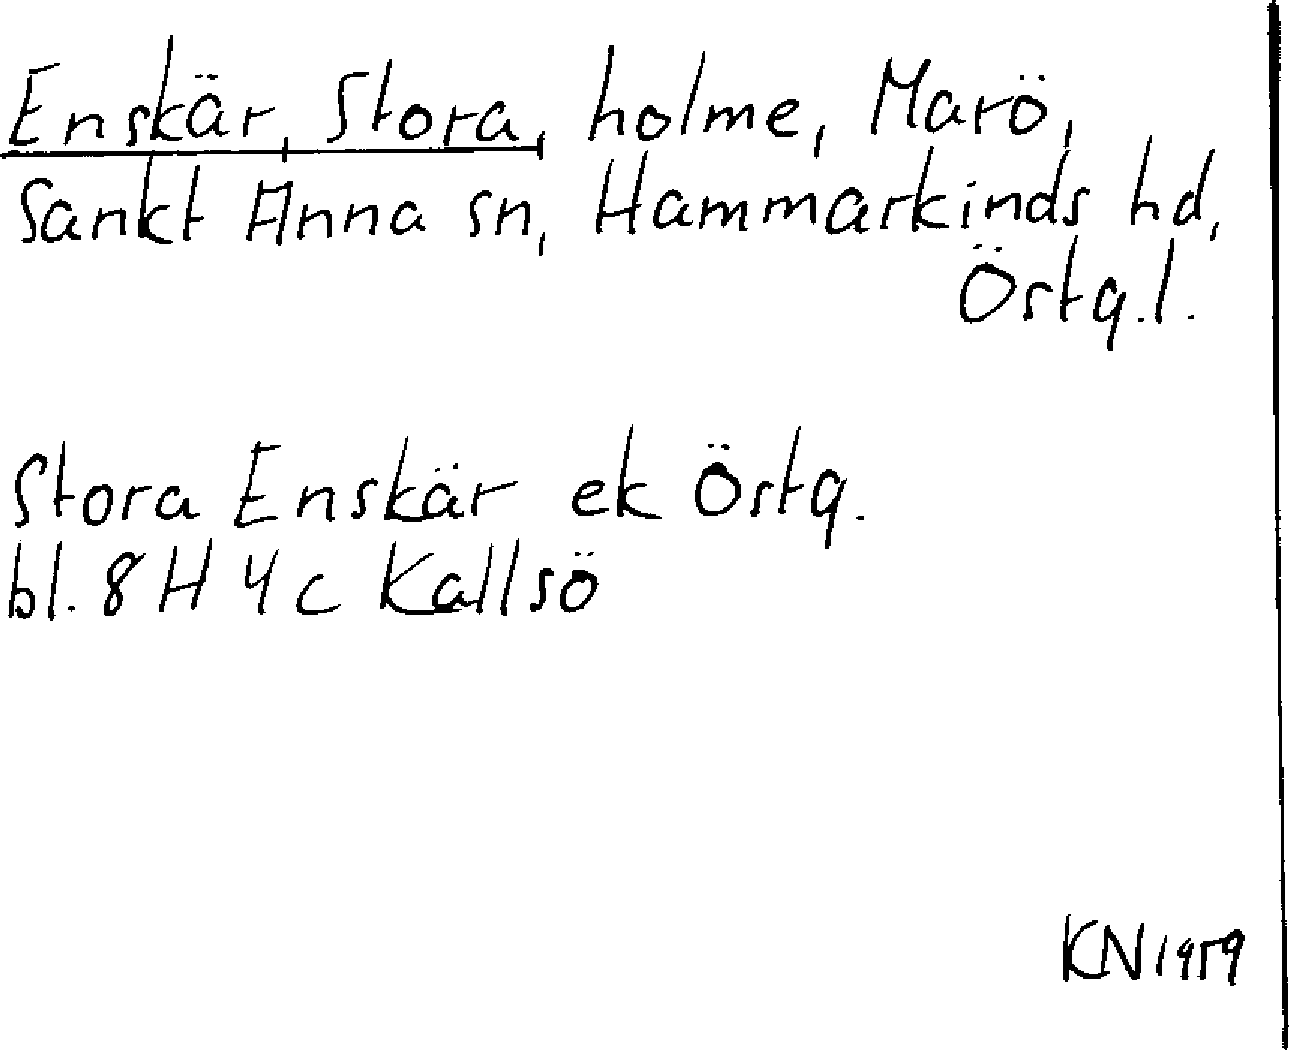 Enskär, Stora, holme, Marö,
Sankt Anna sn, Hammarkinds hd,
Östg.l.
Stora Enskär ek Östg.
bl. 8 H 4 c Kallsö
KN 1959